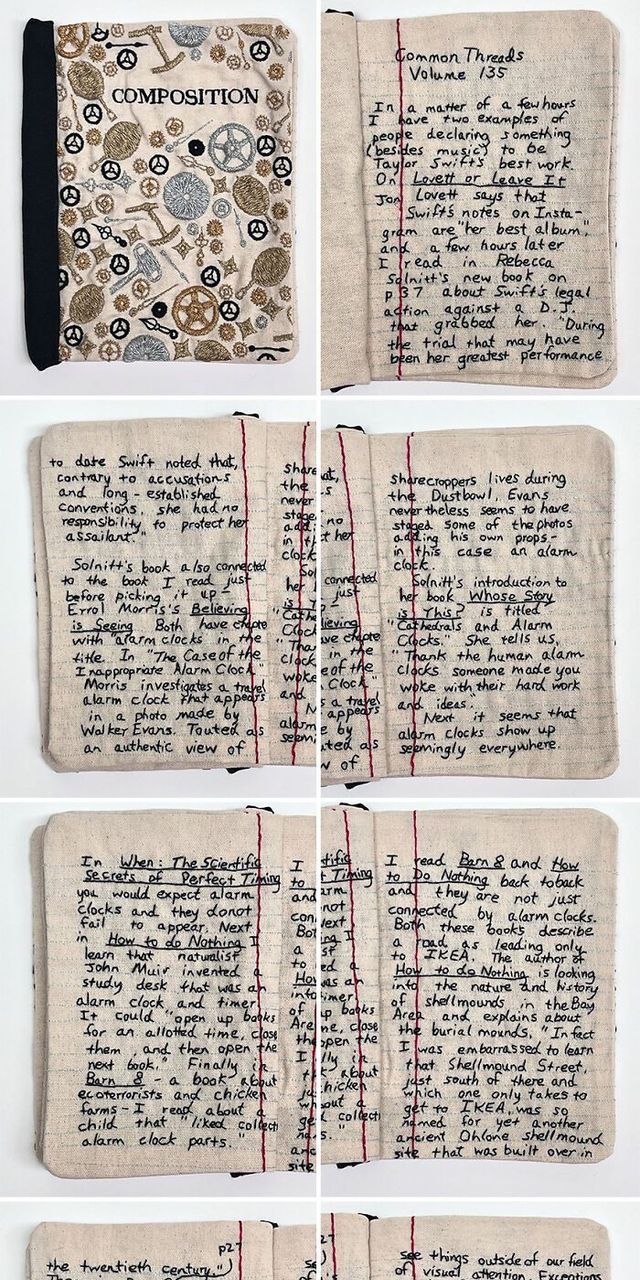 COMPOSITION
Common Threads
Volume 135
In a matter of a few hours
I have two examples of
people declaring something
(besides music) to be
Taylor Swift's best work.
On Lovett or Leave It
Jon Lovett says that
Swift's notes on Insta-
gram are "her best album,"
and a few hours later
I read in Rebecca
Solnitt's new book on
p 37 about Swift's legal
action against a D.J.
that grabbed her. "During
the trial that may have
been her greatest performance
to date Swift noted that,
contrary to accusations
and long-established
conventions, she had no
responsibility to protect her
assailant."
Solnitt's book also connected
to the book I read just
before picking it up -
Errol Morris's Believing
is Seeing Both have chapte
with "alarm clocks in the
title. In "The Case of the
Inappropriate Alarm Clock"
Morris investigates a travel
alarm clock that appears
in a photo made by
Walker Evans. Touted as
an authentic view of
sharecroppers lives during
the Dustbowl, Evans
nevertheless seems to have
staged some of the photos
adding his own props-
in this case an alarm
clock.
Solnitt's introduction to
her book Whose Story
is This? is titled
"Cathedrals and Alarm
Clocks." She tells us,
"Thank the human alarm
clocks someone made you
woke with their hard work
and ideas.
Next it seems that
alarm clocks show up
seemingly everywhere.
In When: The Scientific
Secrets of Perfect Timing
you would expect alarm
clocks and they do not
fail to appear. Next
in How to do Nothing I
learn that naturalist
John Muir invented a
study desk that was an
alarm clock and timer
It could "open up books
for an allotted time, close
them, and then open the
next book." Finally in
Barn 8 - a book about
ecoterrorists and chicken
farms - I read about a
child that "liked collecti
alarm clock parts."
I read Barn 8 and How
to Do Nothing back to back
and they are not just
connected by alarm clocks.
Both these books describe
a road as leading only
to IKEA. The author of
How to do Nothing is looking
into the nature and history
of shellmounds in the Bay
Area and explains about
the burial mounds, "In fact
I was embarrassed to learn
that Shellmound Street,
just south of there and
which one only takes to
get to IKEA, was so
named for yet another
ancient Ohlone shellmound
site that was built over in
p27
the twentieth century.")
see things outside of our field
of visual attention. Exceptions